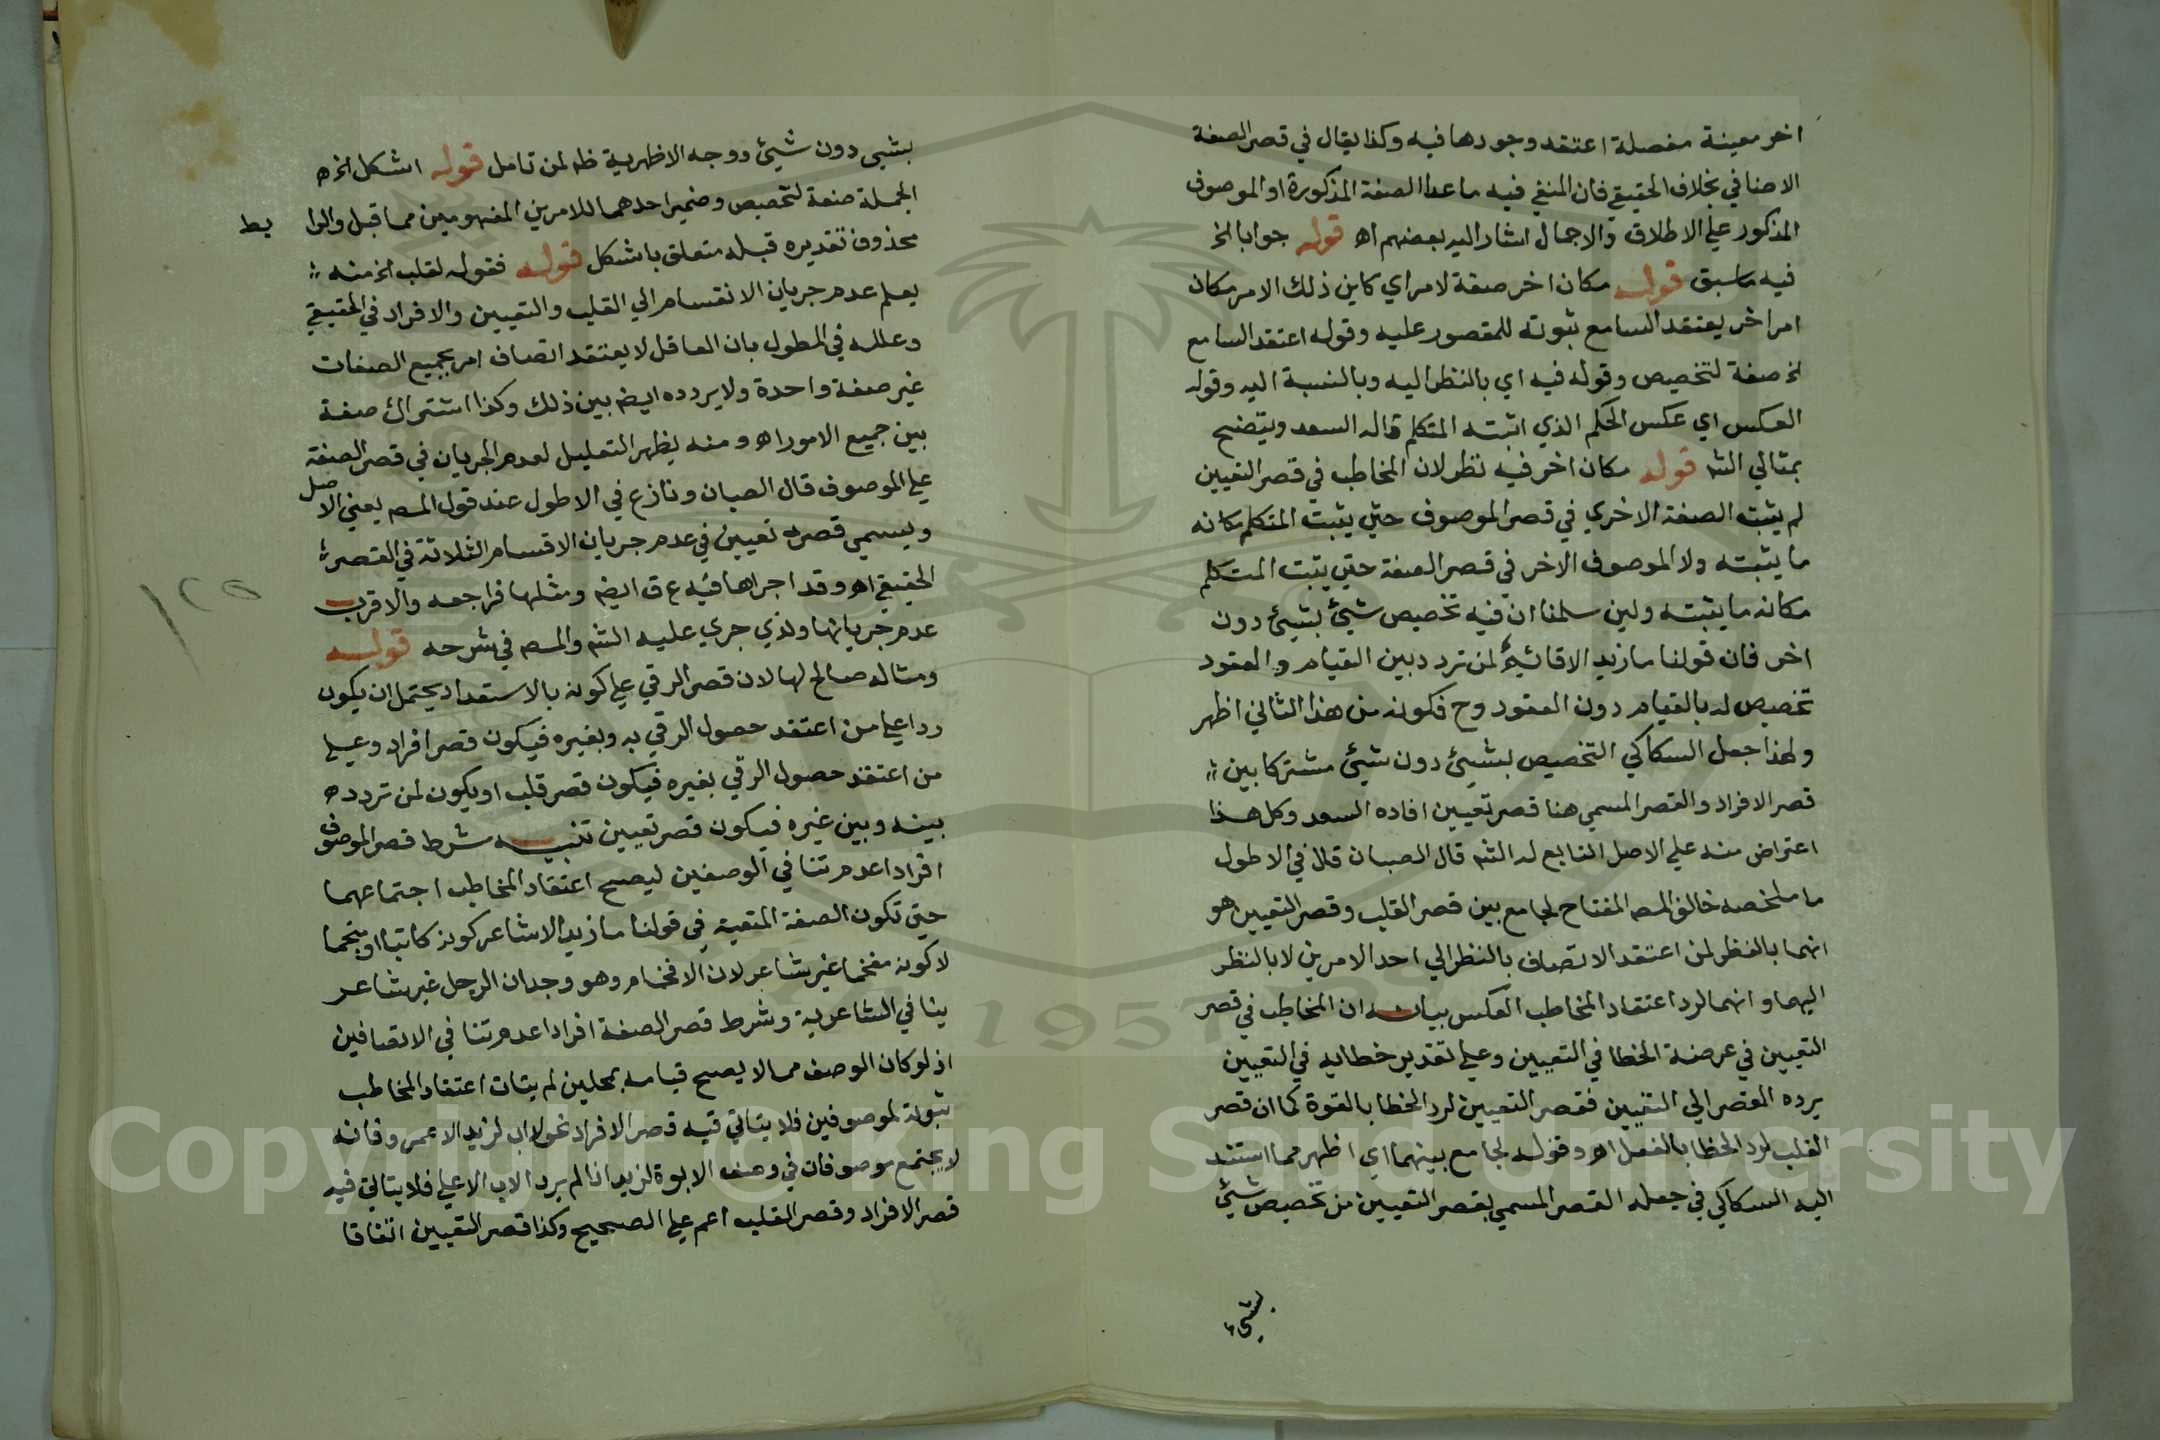 اخر معينة مفصلة اعتقد وجودها فيه وكذا يقال في قصر الصفة
الاضافي بخلاف الحقيقي فان المنفي فيه ماعدا الصفة المذكورة او الموصوف
المذكور علي الاطلاق والاجمال اشار اليه بعضهم اه قوله جوابا الخ
فيه ماسبق قوله مكان اخر صفة لامر اي كاين ذلك الامر مكان
امر اخر يعتقد السامع ثبوته للمقصور عليه وقوله اعتقد السامع
الخ صفة لتخصيص وقوله فيه اي بالنظر اليه وبالنسبة اليه وقوله
العكس اي عكس الحكم الذي اثبته المتكلم قاله السعد ويتضح
بمثالي الشه قوله مكان اخر فيه نظر لان المخاطب في قصر التعيين
لم يثبت الصفة الاخري في قصر الموصوف حتي يثبت المتكلم مكانه
ما يثبته ولا الموصوف الاخر في قصر الصفة حتي يثبت المتكلم
مكانه ما يثبته ولين سلمنا ان فيه تخصيص شيئ بشيئ دون
اخر فان قولنا ما زيد الا قائم لمن تردد بين القيام والقعود
تخصيص له بالقيام دون القعود وح فكونه من هذا الثاني اظهر
ولهذا جعل السكاكي التخصيص بشيئ دون شيئ مشتركا بين
قصر الافراد والقصر المسمي هنا قصر تعيين افاده السعد وكل هذا
اعتراض منه علي الاصل التابع له الشه قال الصبان قال في الاطول
ما ملخصه خالف المص المفتاح لجامع بين قصر القلب وقصر التعيين هو
انهما بالنظر لمن اعتقد الاتصاف بالنظر الي احد الامرين لا بالنظر
اليهما وانهما لرد اعتقاد المخاطب العكس بيانه ان المخاطب في قصر
التعيين في عرضة الخطا في التعيين وعلي تقدير خطايه في التعيين
يرده القصر الي التعيين فقصر التعيين لرد الخطا بالقوة كما ان قصر
القلب لرد الخطا بالفعل اه وقوله لجامع بينهما اي اظهر مما استند
اليه السكاكي في جعله القصر المسمي بقصر التعيين من تخصيص شيئ
بشيئ
بشيئ دون شيئ ووجه الاظهرية ظه لمن تامل قوله اشكل الخ
الجملة صفة لتخصيص وضمير احدهما للامرين المفهومين مما قبل والرا بط
محذوف تقديره قبله متعلق باشكل قوله فقوله لقلب الخ منه
يعلم عدم جريان الانقسام الي القلب والتعيين والافراد في الحقيقي
وعلله في المطول بان العاقل لا يعتقد اتصاف امر بجميع الصفات
غير صفة واحدة ولا يردده ايضه بين ذلك وكذا اشتراك صفة
بين جميع الامور اه ومنه يظهر التعليل لعدم الجريان في قصر الصفة
علي الموصوف قال الصبان ونازع في الاطول عند قول المصه يعني الاصل
ويسمي قصره تعيين في عدم جريان الاقسام الثلاثة في القصر
الحقيقي اه وقد اجراها فيه ع ق ايضه ومثلها فراجعه والاقرب
عدم جريانها والذي جري عليه الشه والمصه في شرحه قوله
ومثاله صالح لها لان قصر الرقي علي كونه بالاستعداد يحتمل ان يكون
ردا علي من اعتقد حصول الرقي به وبغيره فيكون قصر افراد وعلي
من اعتقد حصول الرقي بغيره فيكون قصر قلب او يكون لمن تردد
بينه وبين غيره فيكون قصر تعيين تنبيه شرط قصر الموصوف
افرادا عدم تنافي الوصفين ليصح اعتقاد المخاطب اجتماعهما
حتي تكون الصفة المنفية في قولنا ما زيد الا شاعر كونه كاتبا او منجما
لا كونه مفحما غير شاعر لان الافحام وهو وجدان الرجل غير شاعر
ينافي الشاعرية وشرط قصر الصفة افرادا عدم تنافي الاتصافين
اذ لو كان الوصف مما لا يصح قيامه بمحلين لم يتات اعتقاد المخاطب
ثبوته لموصوفين فلا يتاتي فيه قصر الافراد نحو لا اب لزيد الا عمرو فانه
لا يجتمع موصوفان في وصف الابوة لزيد اذا لم يرد الاب الاعلي فلا يتاتي فيه
قصر الافراد وقصر القلب اعم علي الصحيح وكذا قصر التعيين اتفاقا
١٢٥
Copyright © King Saud University
1957